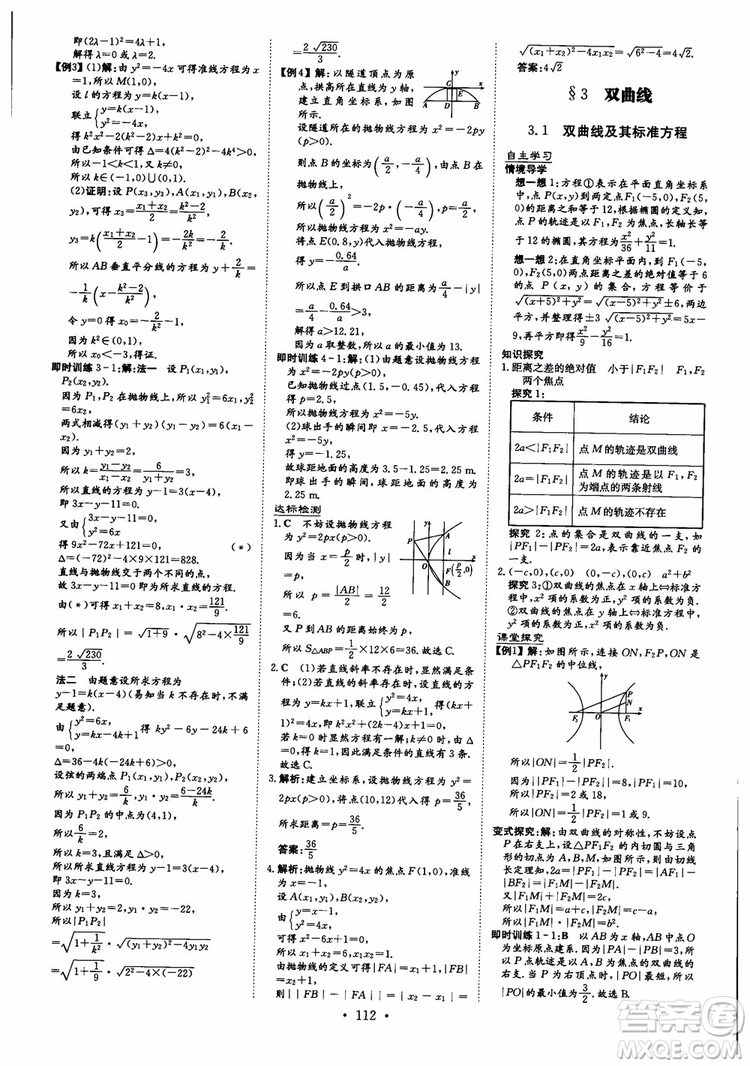 即(2λ-1)²=4λ+1.
解得 λ=0 或 λ=2.
【例3】(1)解:由 y²=-4x 可得准线方程为 x=1,
所以 M(1,0),
设 l 的方程为 y=k(x-1),
联立{y=k(x-1), y²=-4x,
得 k²x²-2(k²-2)x+k²=0,
由已知条件可得 k≠0,
且 Δ=4(k²-2)²-4k⁴>0,
所以-1<k<1,且 k≠0,
所以 k∈(-1,0)∪(0,1).
(2)证明:设 P(x₃,y₃),A(x₁,y₁),B(x₂,
y₂),可得 x₃=(x₁+x₂)/2=(k²-2)/k²,
y₃=k((x₁+x₂)/2-1)=-2k/k²=-2/k,
所以 AB 垂直平分线的方程为 y+2/k=
-1/k(x-(k²-2)/k²),
令 y=0,得 x₀=-1-2/k²,
因为 k²∈(0,1),
所以 x₀<-3,得证.
即时训练 3-1:解:法一 设 P₁(x₁,y₁),
P₂(x₂,y₂).
因为 P₁,P₂ 在抛物线上,所以 y₁²=6x₁,y₂²
=6x₂.
两式相减得(y₁+y₂)(y₁-y₂)=6(x₁-x₂).
因为 y₁+y₂=2,
所以 k=(y₁-y₂)/(x₁-x₂)=6/(y₁+y₂)=3,
所以直线的方程为 y-1=3(x-4),
即 3x-y-11=0.
又由{3x-y-11=0, y²=6x,
得 9x²-72x+121=0, (*)
Δ=(-72)²-4×9×121>0,
直线与抛物线交于两个不同的点,
故 3x-y-11=0 即为所求直线的方程.
由(*)可得 x₁+x₂=8,x₁x₂=121/9,
所以 |P₁P₂|=√(1+9)·√(8²-4×121/9)
=2√230/3.
法二 由题意设所求方程为
y-1=k(x-4)(易知当 k=0 时,不满
足题意).
由{y²=6x, y=kx-4k+1,得 ky²-6y-24k+6=0,
Δ=36-4k(-24k+6)>0.
设弦的两端点 P₁(x₁,y₁),P₂(x₂,y₂),
所以 y₁+y₂=6/k,y₁y₂=(6-24k)/k.
因为 P₁P₂ 的中点为(4,1),
所以 6/k=2,
所以 k=3,此时 Δ>0.
所以所求直线方程为 y-1=3(x-4),
即 3x-y-11=0.
因为 k=3,
所以 y₁+y₂=2,y₁y₂=-22,
所以|P₁P₂|
=√(1+1/k²)·√((y₁+y₂)²-4y₁y₂)
=√(1+1/9)·√(2²-4×(-22))
=2√230/3.
【例4】解:以隧道顶点为原
点,拱高所在直线为 y 轴,
建立直角坐标系,如图
所示.
设隧道所在的抛物线方程为 x²=-2py
(p>0).
则点 B 的坐标为(a/2,-a/4),且点 B 在
抛物线上,
所以(a/2)²=-2p·(-a/4),
所以抛物线方程为 x²=-ay.
将点 E(0.8,y)代入抛物线方程,
得 y=-0.64/a.
所以点 E 到拱口 AB 的距离为 a/4-|y|
=a/4-0.64/a>3,
所以 a>12.21,
因为 a 取整数,所以 a 的最小值为 13.
即时训练 4-1:解:(1)由题意设抛物线方程
为 x²=-2py(p>0).
因为抛物线过点(1.5,-0.45),代入方程
得 p=2.5,
故抛物线方程为 x²=-5y.
(2)球出手的瞬间,球的横坐标为-0.5,
代入抛物线方程得 y=-0.05,
故球距地面的高度为 2.3-0.05=
2.25(m).
即球出手的瞬间,球距地面的高度为
2.25 m.
达标检测
1.C 不妨设抛物线方程
为 y²=2px(p>0),
依题意,l⊥x 轴,且焦
点 F(p/2,0),
因为当 x=p/2 时,|y|
=p,
所以 p=|AB|/2=12/2
=6.
又 P 到 AB 的距离始终为 p,
所以 S△ABP=1/2×12×6=36.故选 C.
2.C (1)若直线斜率不存在时,满足条
件;(2)若直线的斜率存在时,设直线方
程为 y=k(x-1)+2,联立{y²=4x, y-2=k(x-
1)⇒ky²-4y+8-4k=0 有唯一解,所以 Δ
=0,即 k²-2k+1=0 或 k=0,解得 k=0
或 k=1.故满足条件的直线有三条.故
选 C.
3.解析:建立坐标系,设抛物线方程为 y²=
2px(p>0),代入点(10,12)得 p=36/5,
所求距离为 p=36/5.
答案:36/5
4.解析:抛物线 y²=4x 的焦点 F(1,0),准线
为 x=-1.
由{y=x-1, y²=4x,
可得 x²-6x+1=0,解得 x₁+x₂=6,
x₁x₂=1.
由抛物线的定义可得|FA|=x₁+1,|FB|
=x₂+1,
则||FB|-|FA||=|x₁-x₂|=
√((x₁+x₂)²-4x₁x₂)=√(6²-4)=4√2.
答案:4√2
§3 双曲线
3.1 双曲线及其标准方程
自主学习
情境导学
想一想 1:方程①表示在平面直角坐标系
中,点 P(x,y)到两定点 F₁(-5,0),F₂(5,
0)的距离之和等于 12,根据椭圆的定义知,
点 P 的轨迹是以 F₁,F₂ 为焦点,长轴长等
于 12 的椭圆,其方程为 x²/36+y²/11=1.
想一想 2:在直角坐标平面内,到 F₁(-5,
0),F₂(5,0)两点距离之差的绝对值等于 6
的点 P(x,y)的集合,方程变为
√((x+5)²+y²)-√((x-5)²+y²)=±6,两
边平方,并整理得±3√((x-5)²+y²)=5x-
9,再平方即可得出方程.
知识探究
1.距离之差的绝对值 小于|F₁F₂|
两个焦点
探究 1:
条件 结论
2a<|F₁F₂| 点 M 的轨迹是双曲线
2a=|F₁F₂| 点 M 的轨迹是以 F₁,F₂
为端点的两条射线
2a>|F₁F₂| 点 M 的轨迹不存在
探究 2:点的集合是双曲线的一支,如
|PF₁|-|PF₂|=2a,则为靠近 F₂ 的一支.
2.(-c,0),(c,0) (0,-c),(0,c) a²+b²
探究 3:①双曲线的焦点在 x 轴上⇔标准方
程中,x² 项的系数为正,y² 项的系数为负;
②双曲线的焦点在 y 轴上⇔标准方程中,
y² 项的系数为正,x² 项的系数为负.
课堂探究
【例1】解:如图,连接 ON,F₂P,ON 是
△PF₁F₂ 的中位线.
所以|ON|=1/2|PF₂|,
因为||PF₁|-|PF₂||=4,|PF₁|=5,
所以|PF₂|=1 或 9,
所以|ON|=1/2|PF₂|=1/2或 9/2.
变式探究:解:由双曲线的对称性,不妨设点
P 在右支上,设△PF₁F₂ 的内切圆与三角
形的切点为 A,B,M,如图,由圆的切线
长定理知,|F₁M|=|AF₁|,|PA|=|PB|,
|BF₂|=|F₂M|,
所以|PF₁|-|PF₂|=|F₁M|-|F₂M|.
所以|F₁M|=a+c,|F₂M|=c-a,
所以|F₁M|·|F₂M|=b².
即时训练 1-1:B 以 AB 为 x 轴,AB 中点 O
为坐标原点建系.由|PA|-|PB|=3<4
知,点 P 轨迹是以 A,B 为焦点的双曲线的
右支.当点 P 为右顶点时,|PO|最短,所以
|PO|的最小值为 3/2.故选 B.
· 112 ·
答案圈
MXQE.COM